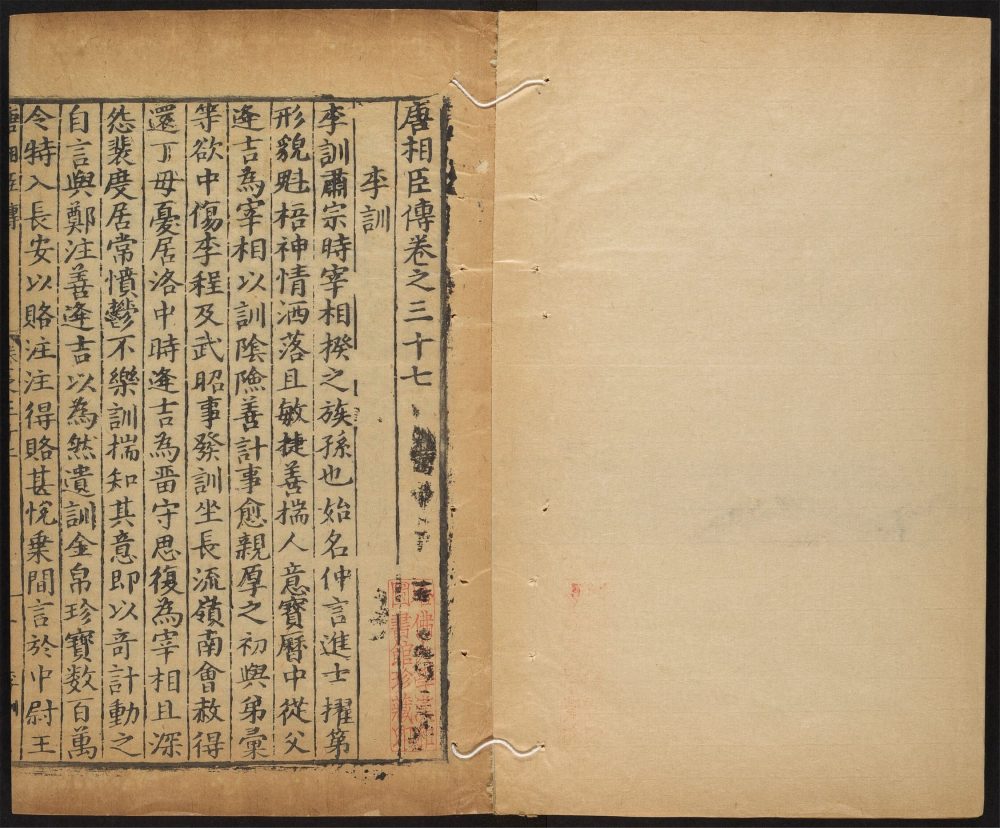 唐相臣傳卷之三十七
李訓
李訓肅宗時宰相揆之族孫也始名仲言進士擢第
形貌魁梧神情洒落且敏捷善揣人意寶曆中從父
逢吉為宰相以訓陰險善計事愈親厚之初與弟彙
等欲中傷李程及武昭事發訓坐長流嶺南會赦得
還丁母憂居洛中時逢吉為畱守思復為宰相且深
怨裴度居常憤鬱不樂訓揣知其意即以奇計動之
自言與鄭注善逢吉以為然遺訓金帛珍寶数百萬
令特入長安以賂注注得賂甚悅乗間言於中尉王
唐相臣傳
李訓
佛
圖書館珍藏印